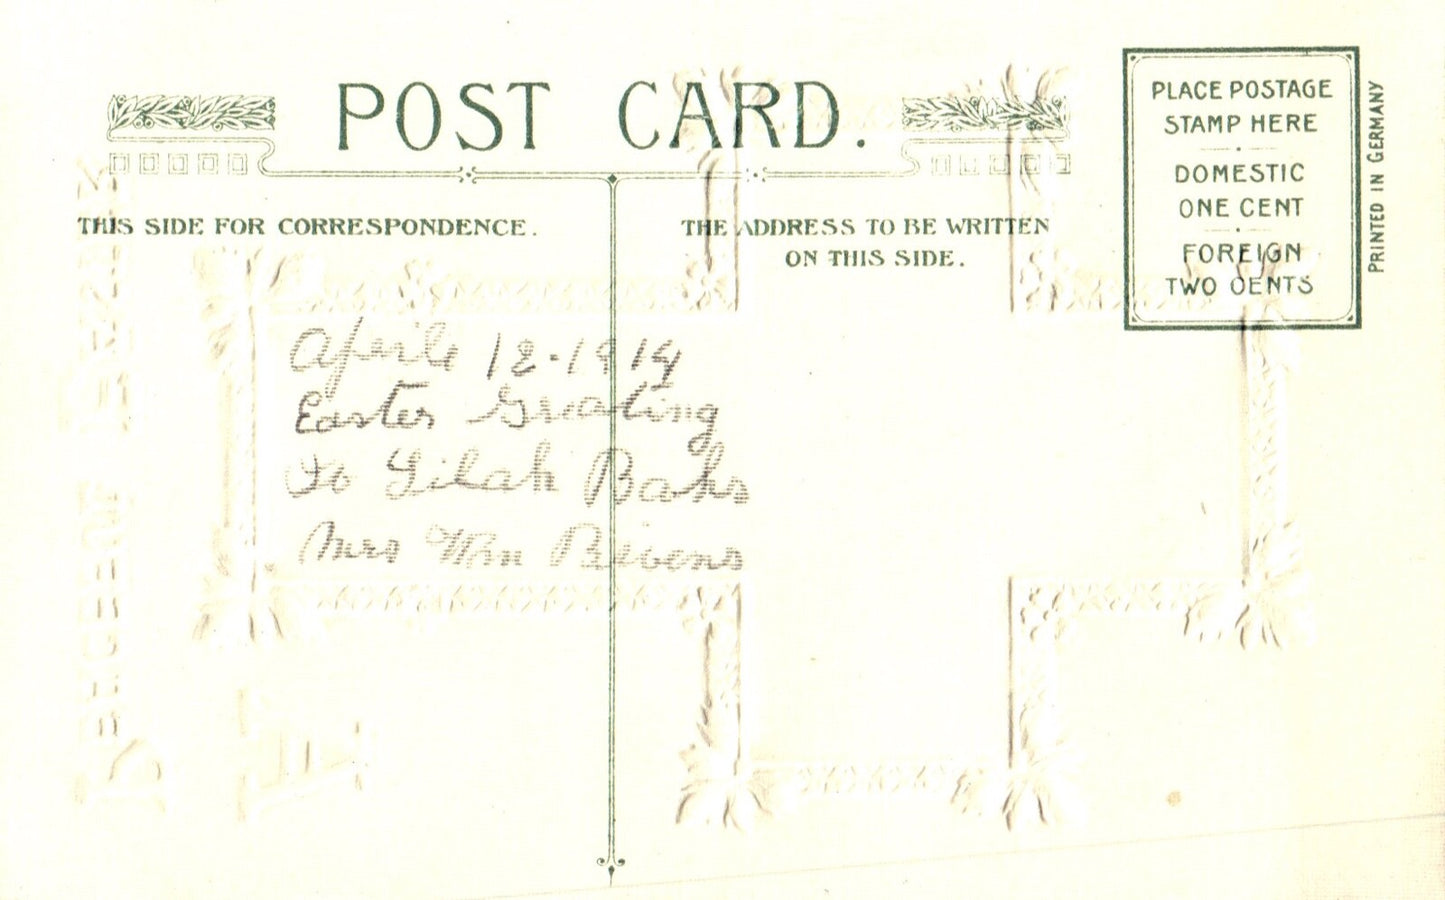 POST CARD.
THIS SIDE FOR CORRESPONDENCE.
THE ADDRESS TO BE WRITTEN
ON THIS SIDE.
PLACE POSTAGE
STAMP HERE
DOMESTIC
ONE CENT
FOREIGN
TWO CENTS
PRINTED IN GERMANY
April 12-1914
Easter Greating
To Lilah Bahs
Mrs Wm Bivens